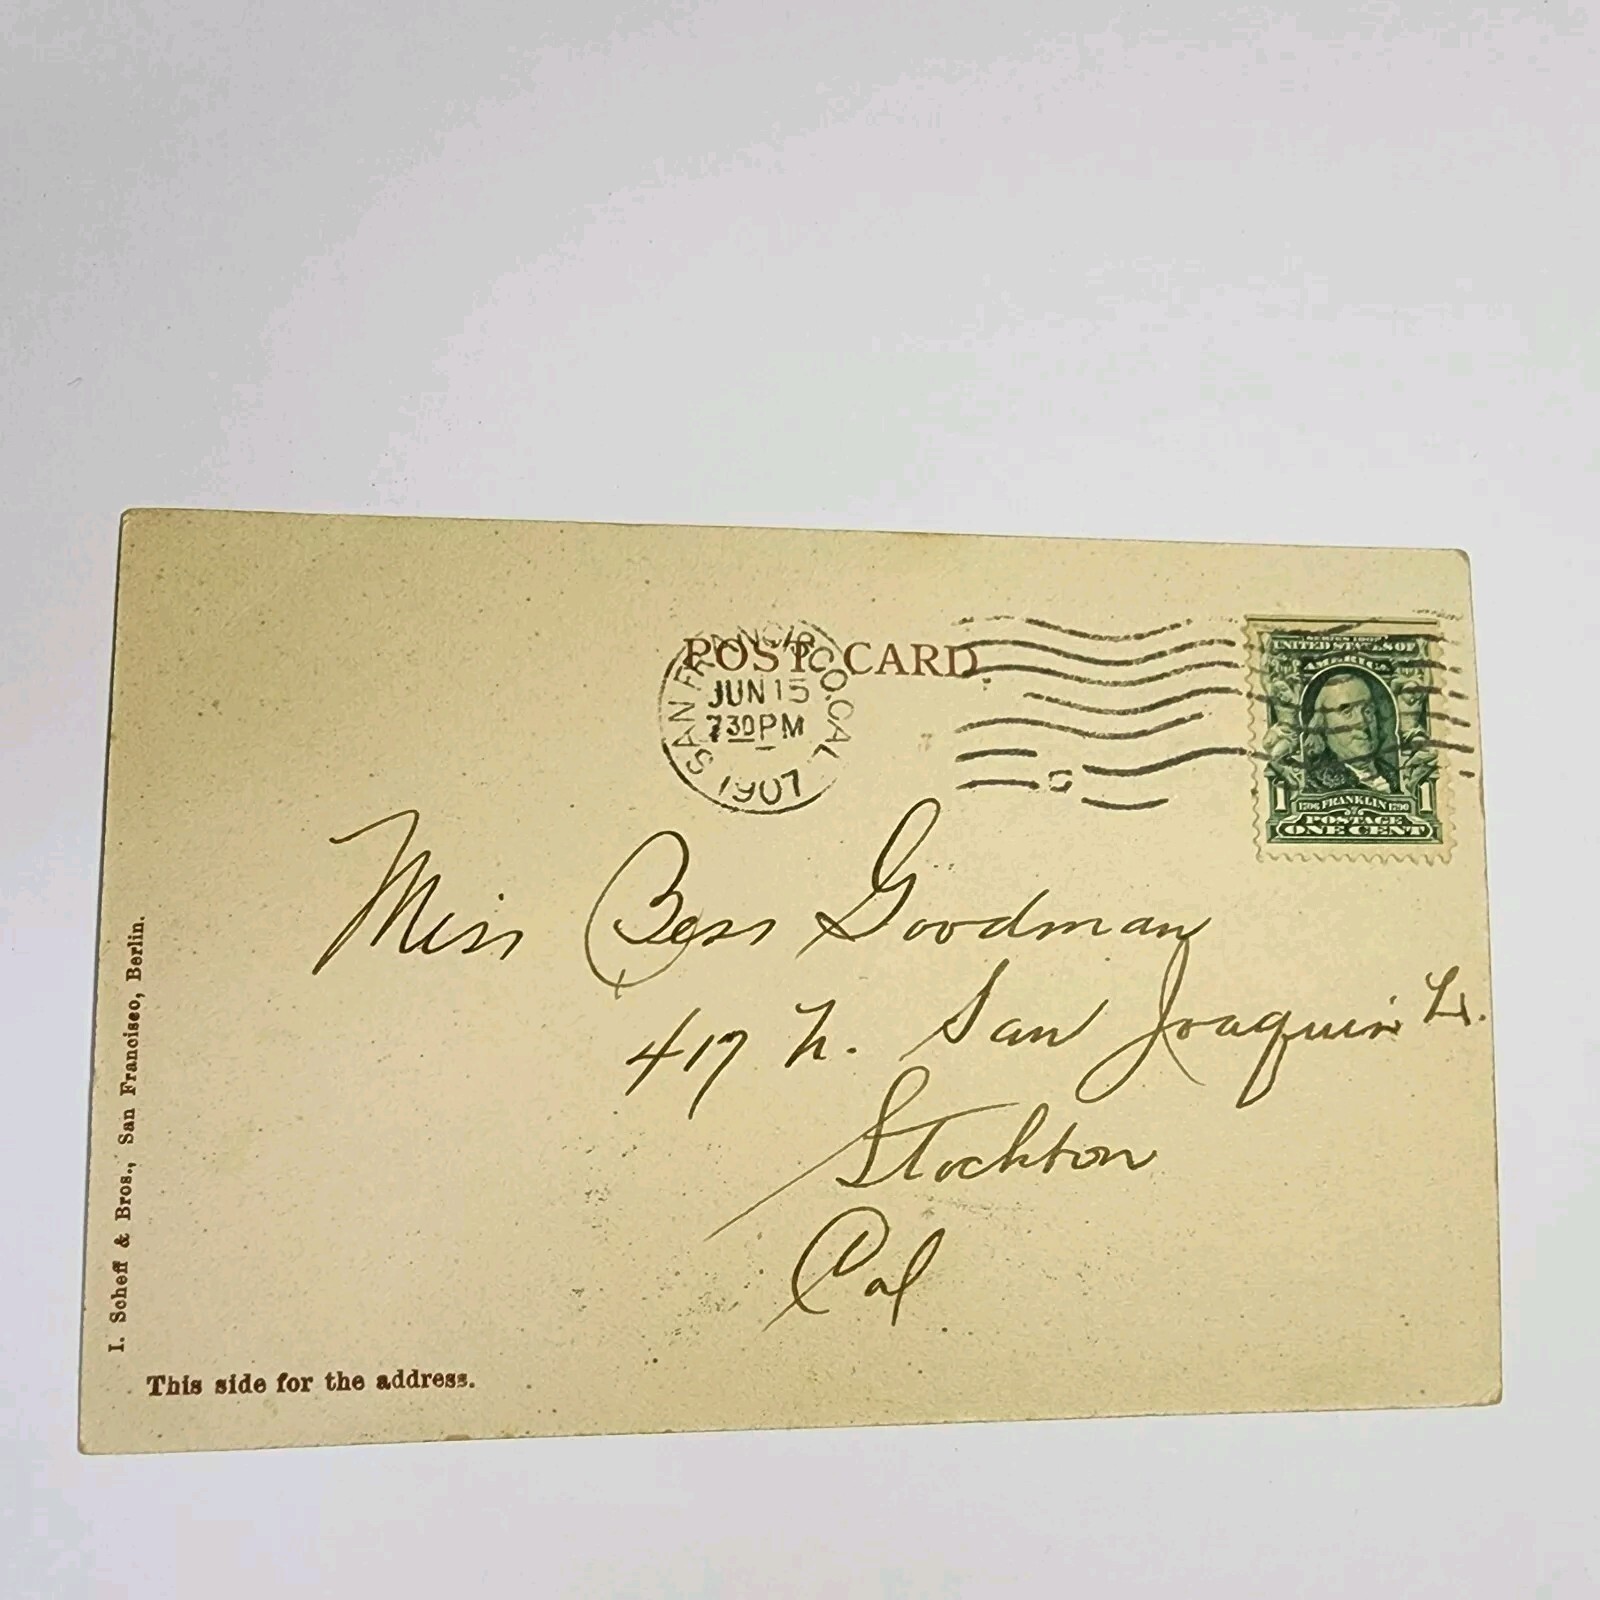 POST CARD.
SAN FRANCISCO. CAL
JUN 15
7 30 PM
1907
SERIES 1902
UNITED STATES OF
AMERICA
1 1706 FRANKLIN 1790 1
POSTAGE
ONE CENT
Miss Bess Goodman
417 N. San Joaquin St.
Stockton
Cal
I. Scheff & Bros., San Francisco, Berlin.
This side for the address.